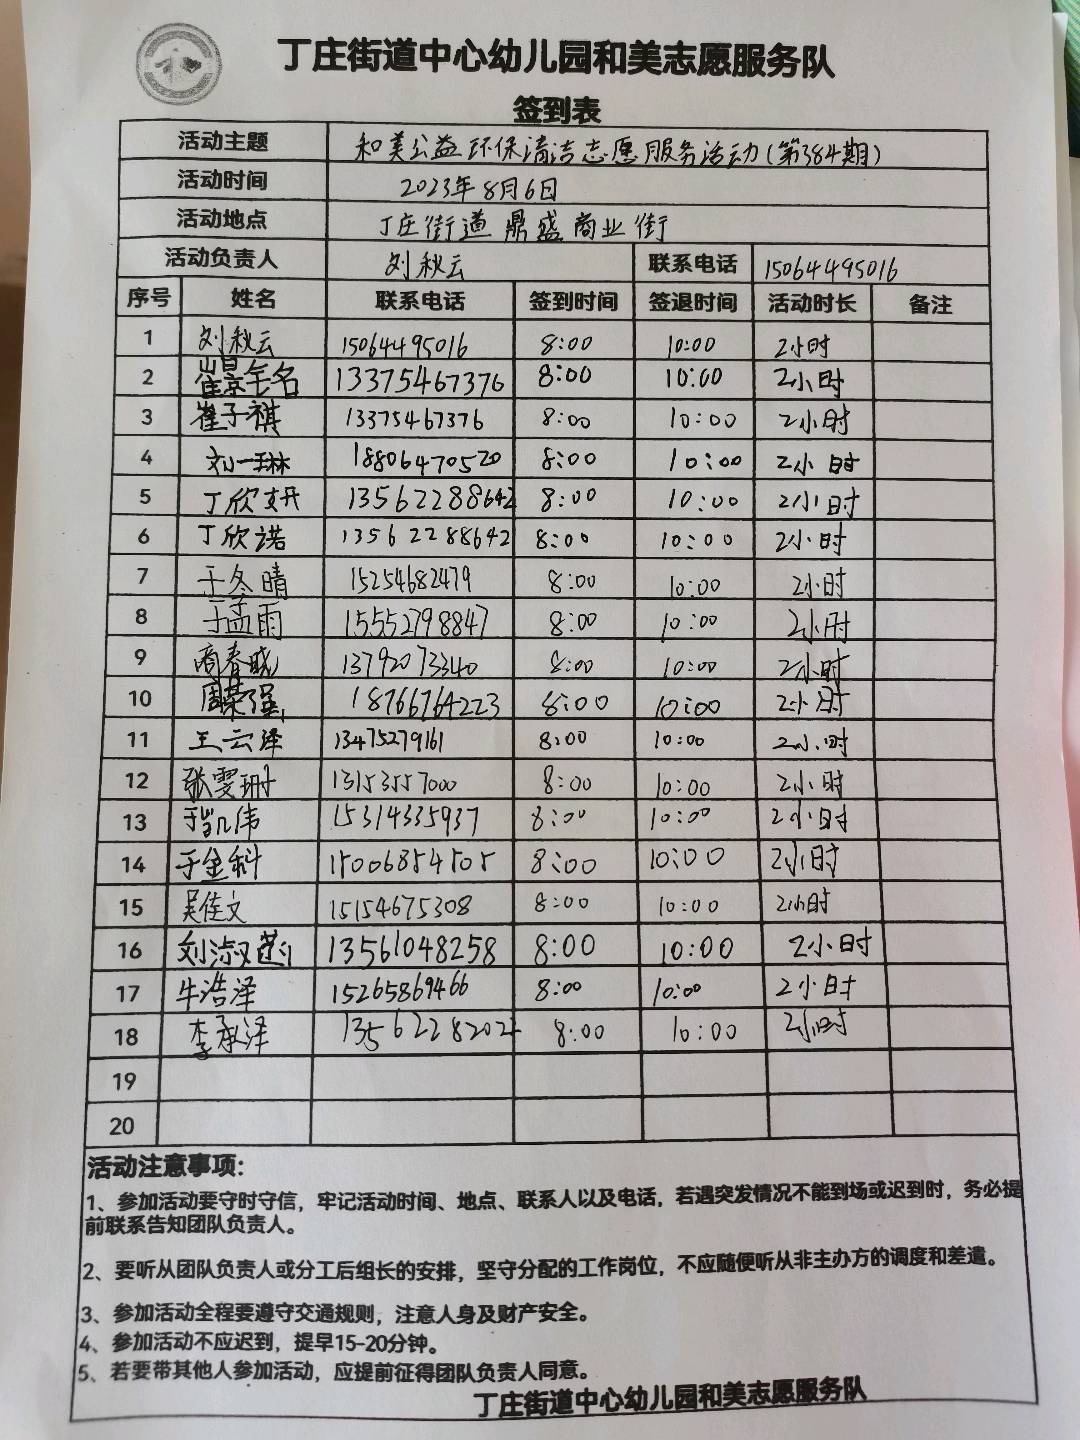 和
丁庄街道中心幼儿园和美志愿服务队
签到表
活动主题 和美公益环保清洁志愿服务活动(第384期)
活动时间 2023年8月6日
活动地点 丁庄街道鼎盛商业街
活动负责人 刘秋云 联系电话 15064495016
序号 姓名 联系电话 签到时间 签退时间 活动时长 备注
1 刘秋云 15064495016 8:00 10:00 2小时
2 13375467376 8:00 10:00 2小时
3 崔子祺 13375467376 8:00 10:00 2小时
4 刘一琳 18806470520 8:00 10:00 2小时
5 丁欣妍 13562288642 8:00 10:00 2小时
6 丁欣诺 13562288642 8:00 10:00 2小时
7 于冬晴 15254682479 8:00 10:00 2小时
8 于孟雨 15552798847 8:00 10:00 2小时
9 商春晓 13792073340 8:00 10:00 2小时
10 周荣强 18766764223 8:00 10:00 2小时
11 王云泽 13475279161 8:00 10:00 2小时
12 张雯珊 13153557000 8:00 10:00 2小时
13 于凯伟 15314335937 8:00 10:00 2小时
14 于金科 15006854505 8:00 10:00 2小时
15 吴佳文 15154675308 8:00 10:00 2小时
16 刘淑莲 13561048258 8:00 10:00 2小时
17 牛浩泽 15265869466 8:00 10:00 2小时
18 李承泽 8:00 10:00 2小时
19
20
活动注意事项：
1、参加活动要守时守信，牢记活动时间、地点、联系人以及电话，若遇突发情况不能到场或迟到时，务必提
前联系告知团队负责人。
2、要听从团队负责人或分工后组长的安排，坚守分配的工作岗位，不应随便听从非主办方的调度和差遣。
3、参加活动全程要遵守交通规则，注意人身及财产安全。
4、参加活动不应迟到，提早15-20分钟。
5、若要带其他人参加活动，应提前征得团队负责人同意。
丁庄街道中心幼儿园和美志愿服务队